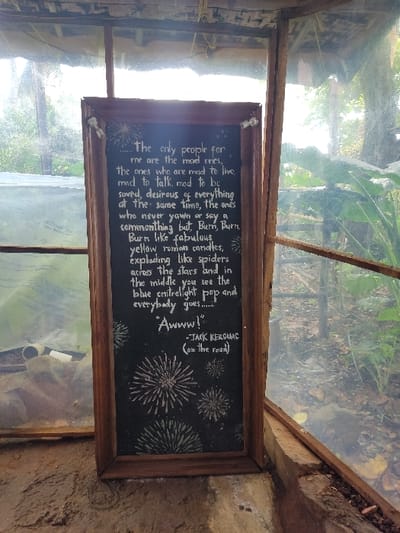 The only people for
me are the mad ones,
the ones who are mad to live,
mad to talk, mad to be
saved, desirous of everything
at the same time, the ones
who never yawn or say a
commonthing but, Burn, Burn,
Burn like fabulous
yellow roman candles,
exploding like spiders
across the stars and in
the middle you see the
blue centrelight pop and
everybody goes......
"Awww!"
-JACK KEROUAC
(on the road)